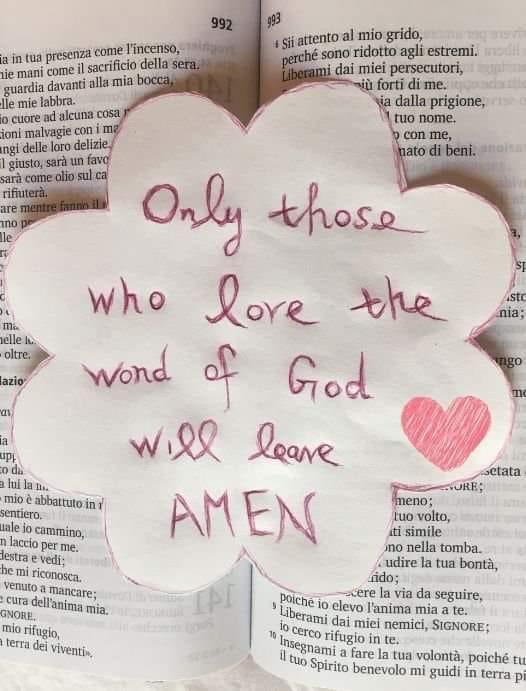 992
in tua presenza come l'incenso,
mani come il sacrificio della sera.
guardia davanti alla mia bocca,
mie labbra.
cuore ad alcuna cosa
malvagie con
delle loro delizie.
giusto, sarà un
sarà come olio sul
rifiuterà.
mentre fanno il
oltre.
a lui la
mio è abbattuto in
sentiero.
quale io cammino,
un laccio per me.
destra e vedi;
che mi riconosca.
venuto a mancare;
cura dell'anima mia.
mio rifugio,
terra dei viventi».
141
Only those
who love the
word of God
will leave
AMEN
993
6 Sii attento al mio grido,
perché sono ridotto agli estremi.
Liberami dai miei persecutori,
più forti di me.
dalla prigione,
tuo nome.
con me,
di beni.
meno;
tuo volto,
simile
nella tomba.
udire la tua bontà,
la via da seguire,
poiché io elevo l'anima mia a te.
9 Liberami dai miei nemici, SIGNORE;
io cerco rifugio in te.
10 Insegnami a fare la tua volontà, poiché tu
il tuo Spirito benevolo mi guidi in terra